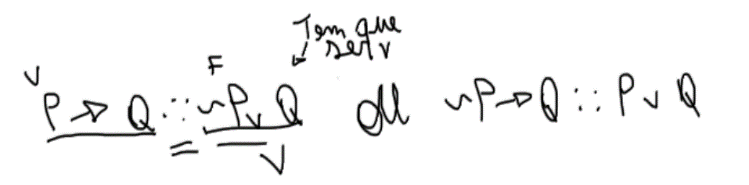 Tem que
ser V
V F
P → Q :: ~P v Q ou ~P → Q :: P v Q
= V